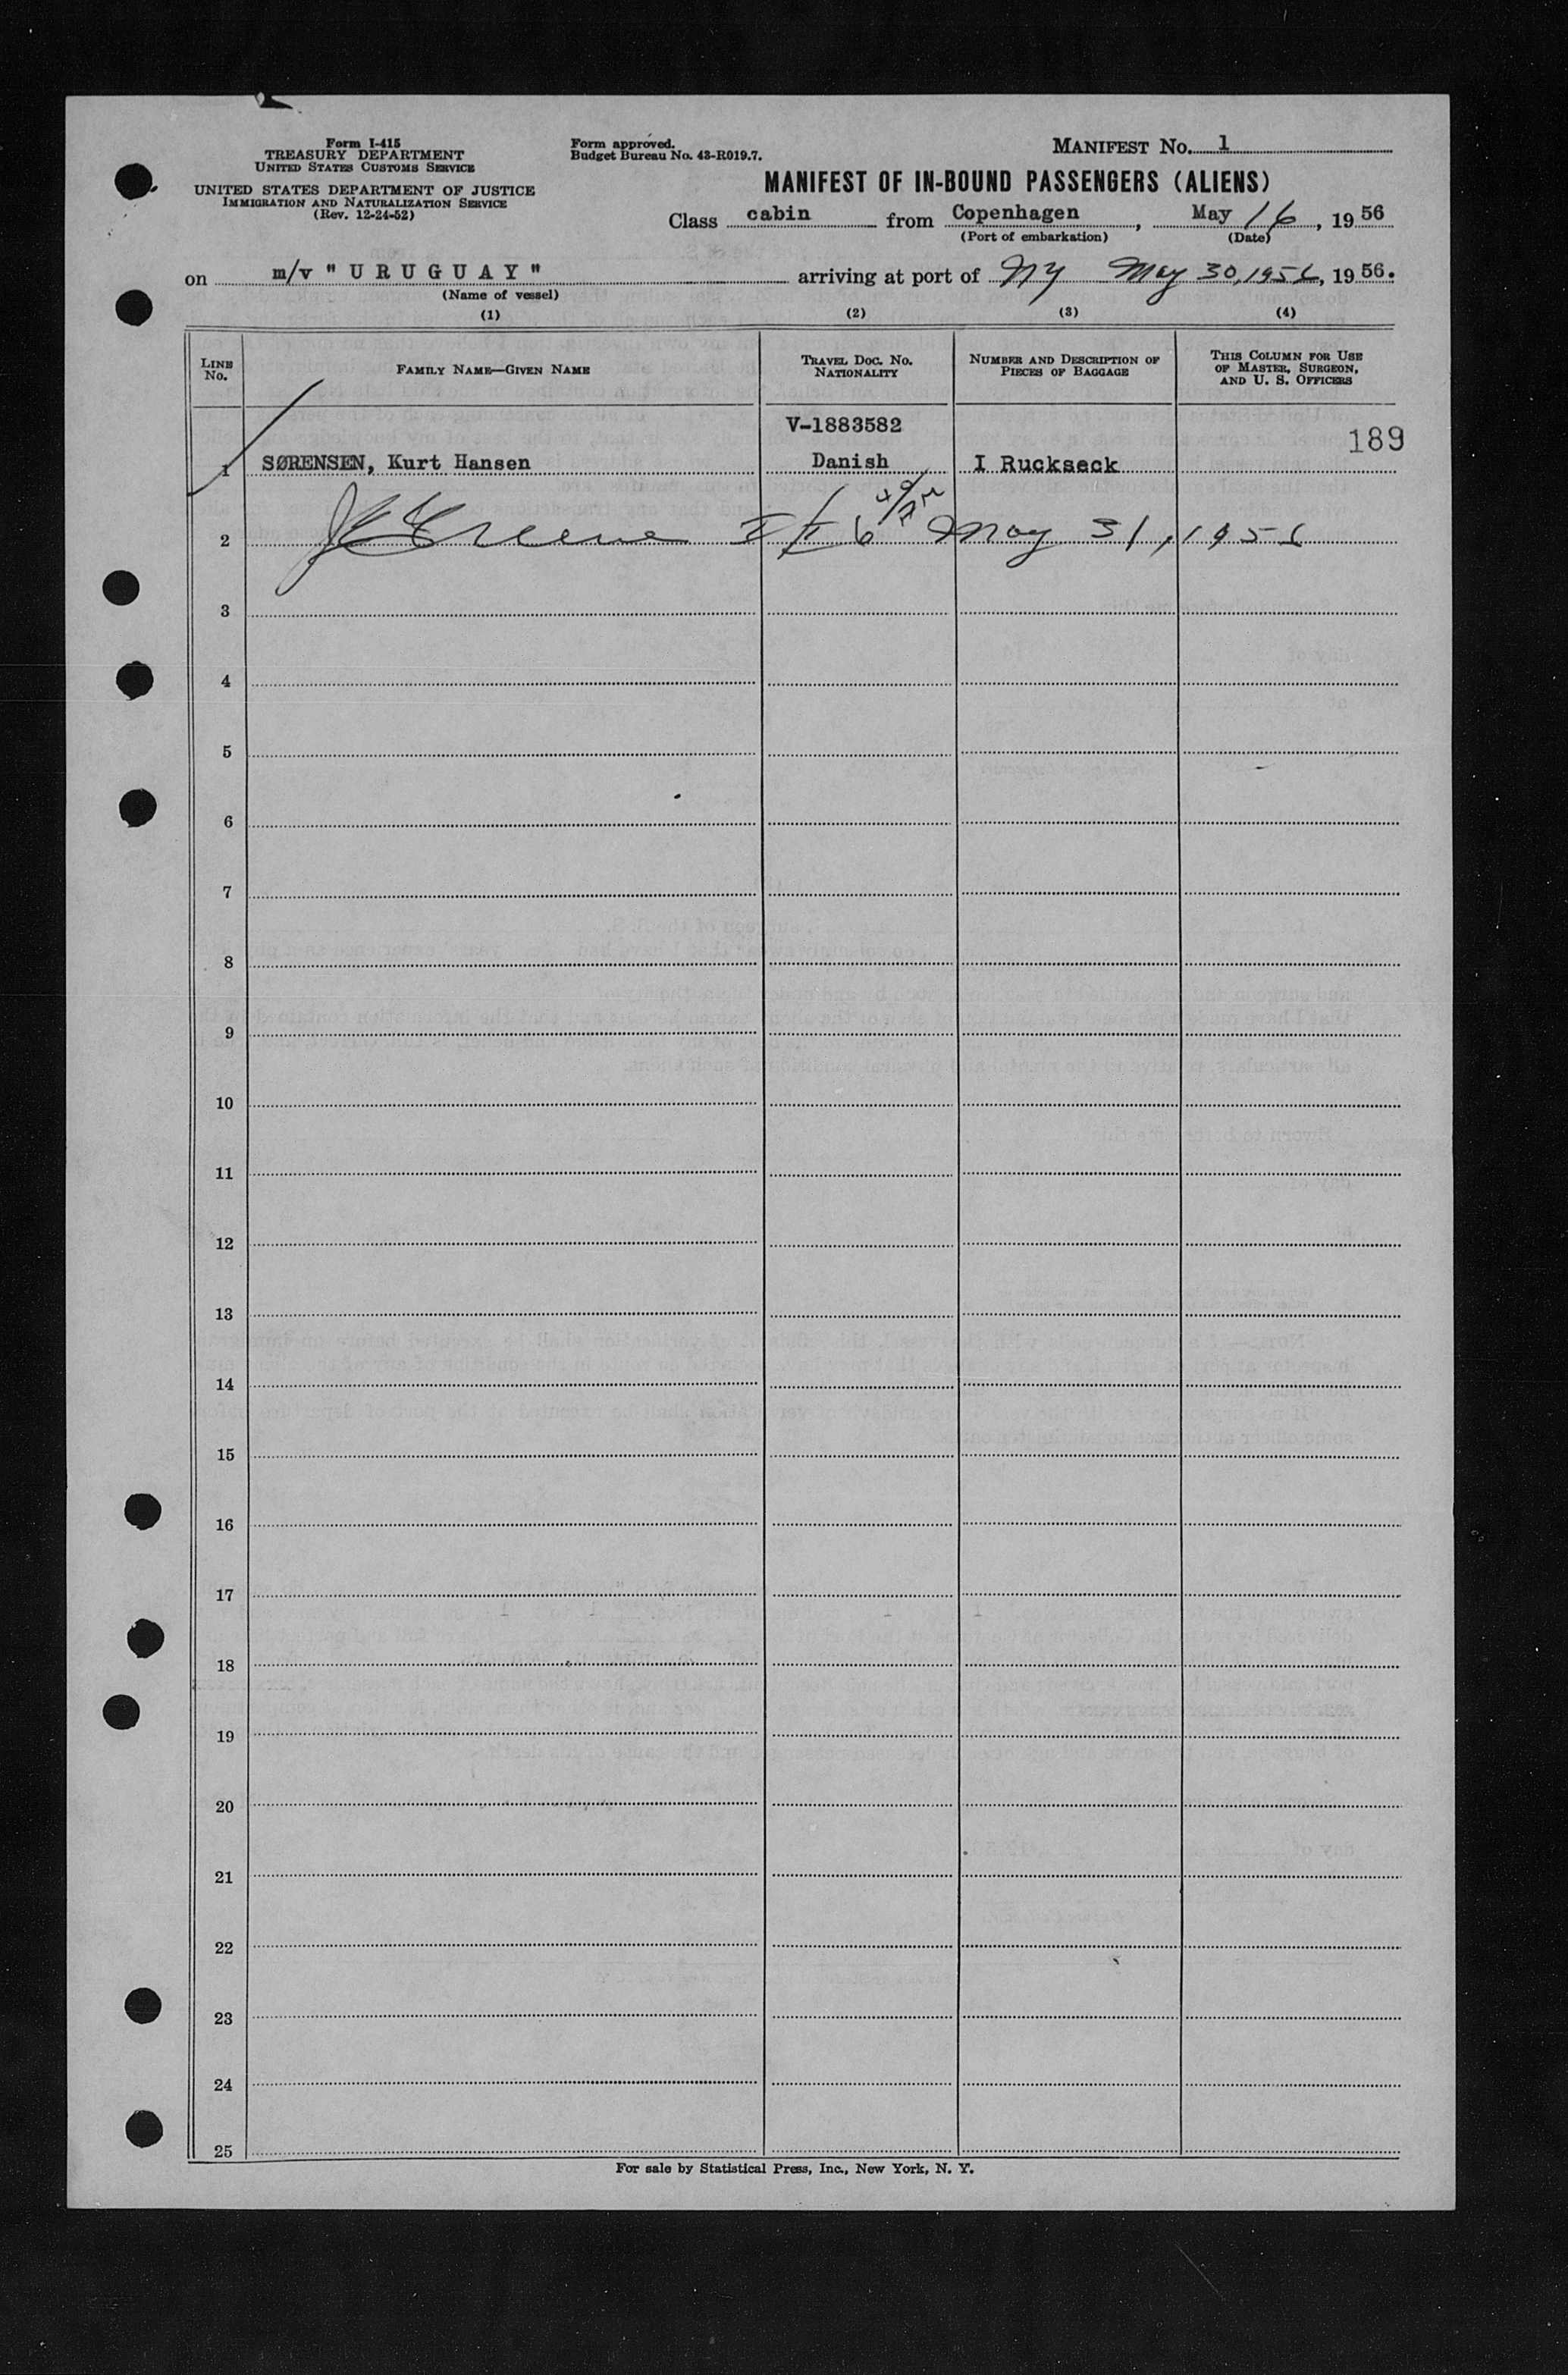 Form I-415
TREASURY DEPARTMENT
UNITED STATES CUSTOMS SERVICE
UNITED STATES DEPARTMENT OF JUSTICE
IMMIGRATION AND NATURALIZATION SERVICE
(Rev. 12-24-52)
Form approved.
Budget Bureau No. 43-R019.7.
MANIFEST No. 1
MANIFEST OF IN-BOUND PASSENGERS (ALIENS)
Class cabin from Copenhagen, May 16, 19 56
(Port of embarkation) (Date)
on m/v " U R U G U A Y " arriving at port of NY May 30, 1956, 19 56.
(Name of vessel)
(1) (2) (3) (4)
LINE No. FAMILY NAME—GIVEN NAME TRAVEL DOC. No. NATIONALITY NUMBER AND DESCRIPTION OF PIECES OF BAGGAGE THIS COLUMN FOR USE OF MASTER, SURGEON, AND U. S. OFFICERS
V-1883582
189
1 SØRENSEN, Kurt Hansen Danish I Ruckseck
2 Greene May 31, 1956
3
4
5
6
7
8
9
10
11
12
13
14
15
16
17
18
19
20
21
22
23
24
25
For sale by Statistical Press, Inc., New York, N. Y.